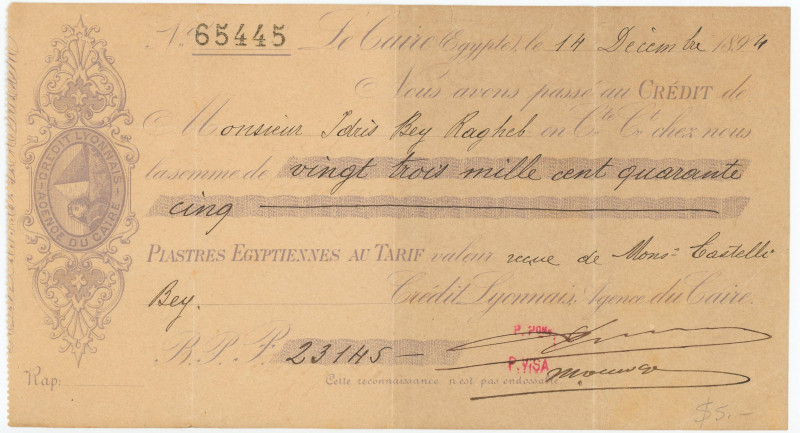 N. 65445 Le Caire (Egypte), le 14 Décembre 1894
Nous avons passé au CRÉDIT de
Monsieur Idris Bey Ragheb en Cte Ct chez nous
la somme de vingt trois mille cent quarante
cinq
PIASTRES EGYPTIENNES AU TARIF valeur recue de Monsr Castelli
Bey. Crédit Lyonnais, Agence du Caire.
B. P. P. 23145
P. PON.
P. VISA
Rap:
Cette reconnaissance n'est pas endossable
CREDIT LYONNAIS
AGENCE DU CAIRE
$5.-